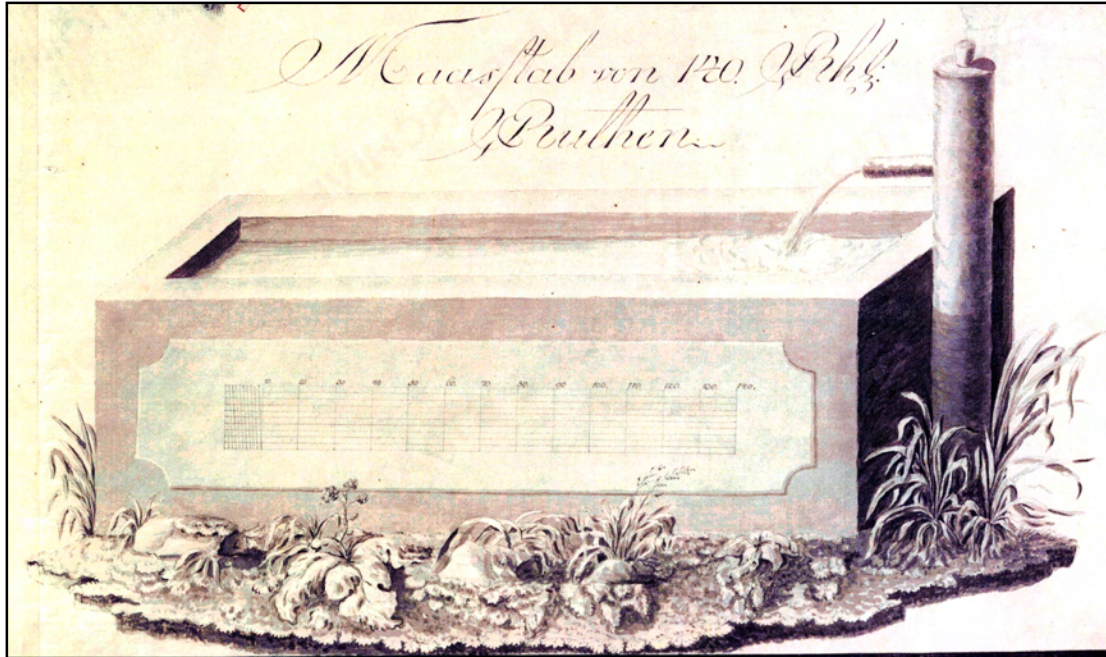 Maasſtab von 140. Rhl:
Ruthen..
10. 20. 30. 40. 50. 60. 70. 80. 90 100. 110. 120. 130. 140.